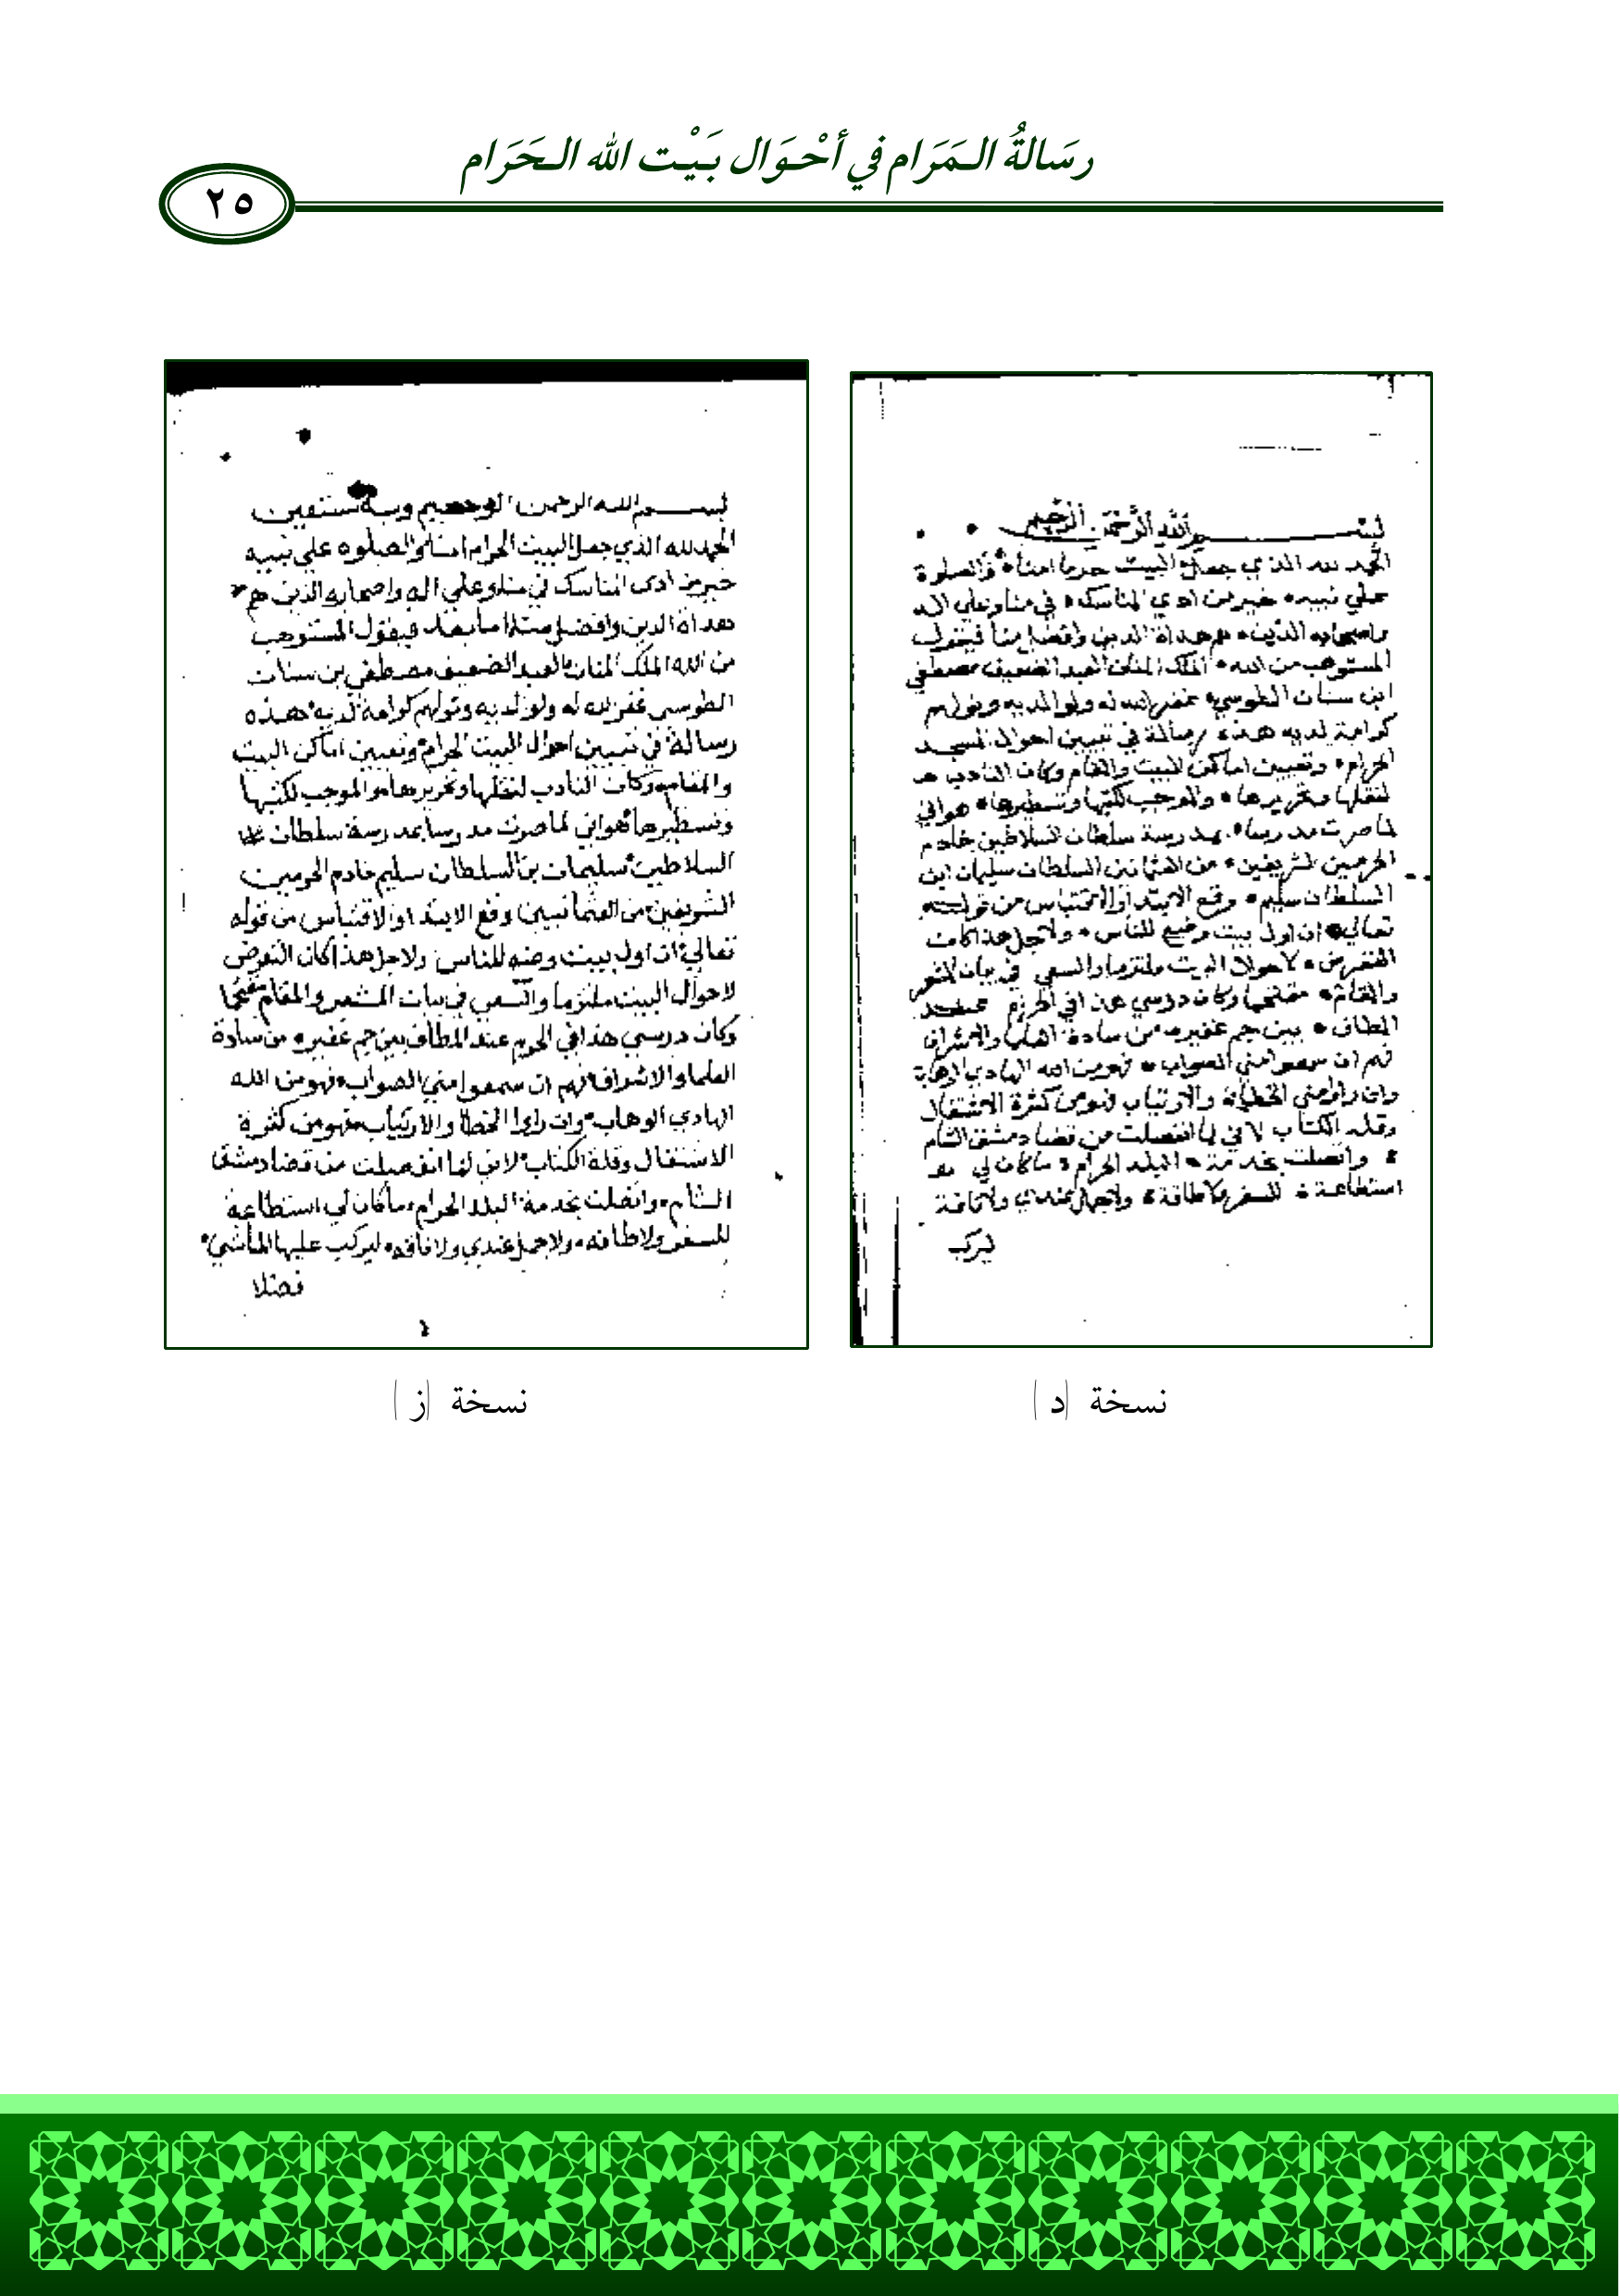 رسَالةُ الـمَرَام في أحْـوَال بَـيْـت الله الـحَرَام
٢٥
بسم الله الرحمن الرحيم
الحمد لله الذي جعل البيت حرما امنا والصلوة
علي نبيه خير من ادي المناسك في منا وعلي اله
واصحابه الذين هم هداة الدين وافضل منا فيقول
المستوهب من الله الملك المنان العبد الضعيف مصطفي
ابن سنان الطوسي غفر الله له ولوالديه ونولهم
كرامة لديه هذه رسالة في تبيين احوال المسجد
الحرام وتعيين اماكن البيت والمقام وكان النادب
لنقلها وتحريرها والموجب لكتبها وتسطيرها هو اني
لما صرت مدرسا بمدرسة سلطان السلاطين خادم
الحرمين الشريفين من العثمانين السلطان سليمان ابن
السلطان سليم وقع الابتدا والاقتباس من قوله
تعالي ان اول بيت وضع للناس ولاجل هذا كانت
التعرض لاحوال البيت ملتزما والسعي في بيان
والمقام وكان درسي هذا في الحرم عند
المطاف بين جم غفير من سادة العلما والاشراف
فهم ان سمعوا مني الصواب فهو من الله الهادي الوهاب
وان راوا مني الخطا والارتياب فهو من كثرة الاشتغال
وقلة الكتاب لاني لما انفصلت من قضا دمشق الشام
واتصلت بخدمة البلد الحرام ما كان لي
استطاعة للسفر ولا طاقة ولا جمال عندي ولا ناقة
ليركب
نسخة (د)
بسم الله الرحمن الرحيم وبه نستعين
الحمد لله الذي جعل البيت الحرام امنا والصلوه علي نبيه
خير من ادى المناسك في منا وعلي اله واصحابه الذين هم
هداة الدين وافضل منا اما بعد فيقول المستوهب
من الله الملك المنان العبد الضعيف مصطفي بن سنان
الطوسى غفر الله له ولوالديه ونولهم كرامة لديه هذه
رسالة في تبيين احوال البيت الحرام وتعيين اماكن البيت
والمقام وكان النادب لنقلها وتحريرها والموجب لكتبها
وتسطيرها هو اني لما صرت مدرسا بمدرسة سلطان
السلاطين سليمان بن السلطان سليم خادم الحرمين
الشريفين من العثمانيين وقع الابتدا والاقتباس من قوله
تعالي ان اول بيت وضع للناس ولاجل هذا كان التعرض
لاحوال البيت ملتزما والسعي في بيان المشعر والمقام
وكان درسي هذا في الحرم عند المطاف بين جم غفير من سادة
العلما والاشراف فهم ان سمعوا مني الصواب فهو من الله
الهادي الوهاب وان راوا الخطا والارتياب فهو من كثرة
الاشتغال وقلة الكتاب لاني لما انفصلت من قضا دمشق
الشام واتصلت بخدمة البلد الحرام ما كان لي استطاعة
للسفر ولا طاقه ولا جمل عندي ولا ناقه ليركب عليها الماشي
فضلا
نسخة (ز)